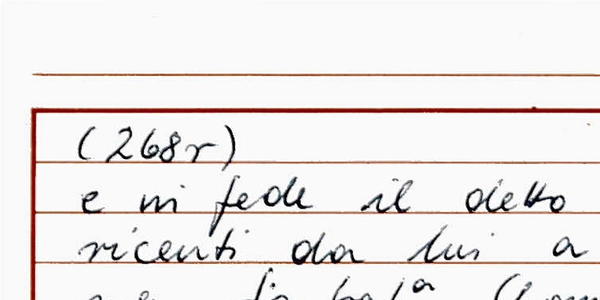 (268r)
e in fede il detto
ricenti da lui a